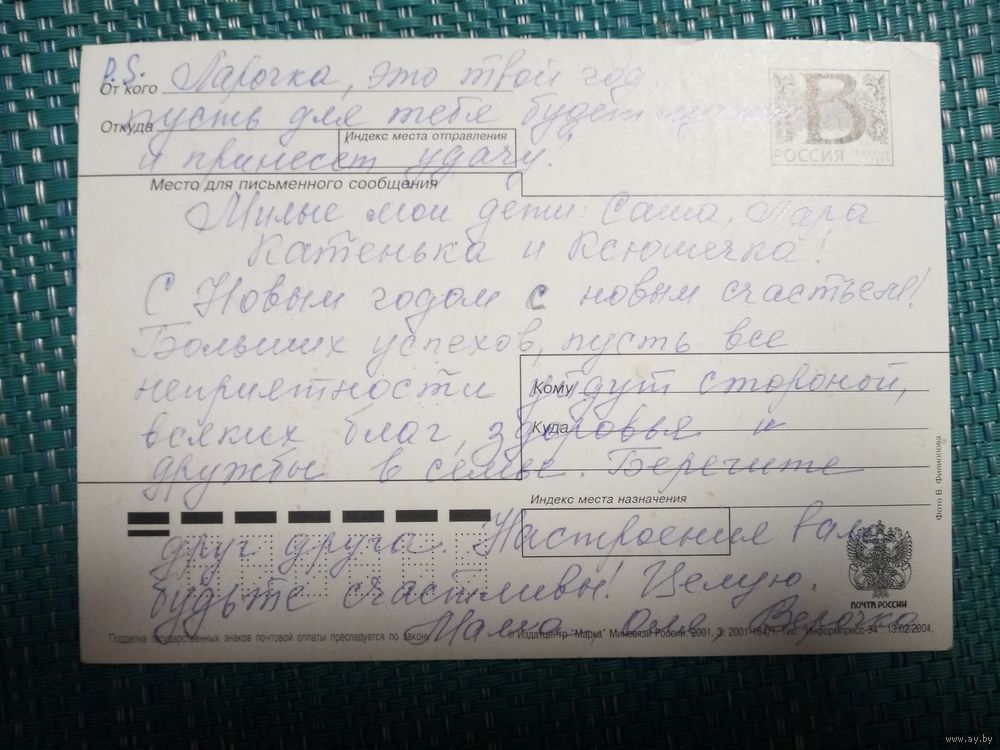 P.S. Ларочка, это твой год,
От кого
пусть для тебя будет
Откуда
Индекс места отправления
и принесёт удачу.
В
РОССИЯ
Место для письменного сообщения
Милые мои дети: Саша, Лара
Катенька и Ксюшечка!
С Новым годом с новым счастьем!
Больших успехов, пусть все
неприятности уйдут стороной,
Кому
всяких благ, здоровья и
Куда
дружбы в семье. Берегите
Индекс места назначения
друг друга. Настроения вам
будьте счастливы! Целую.
ПОЧТА РОССИИ
Мама Оля Верочка
Подделка государственных знаков почтовой оплаты преследуется по закону
© Издатцентр "Марка" Минсвязи России. 2001. З. 2001-164/1. Тип. "Информпресс-94". 13.02.2004.
Фото В. Филиппова
www.ay.by